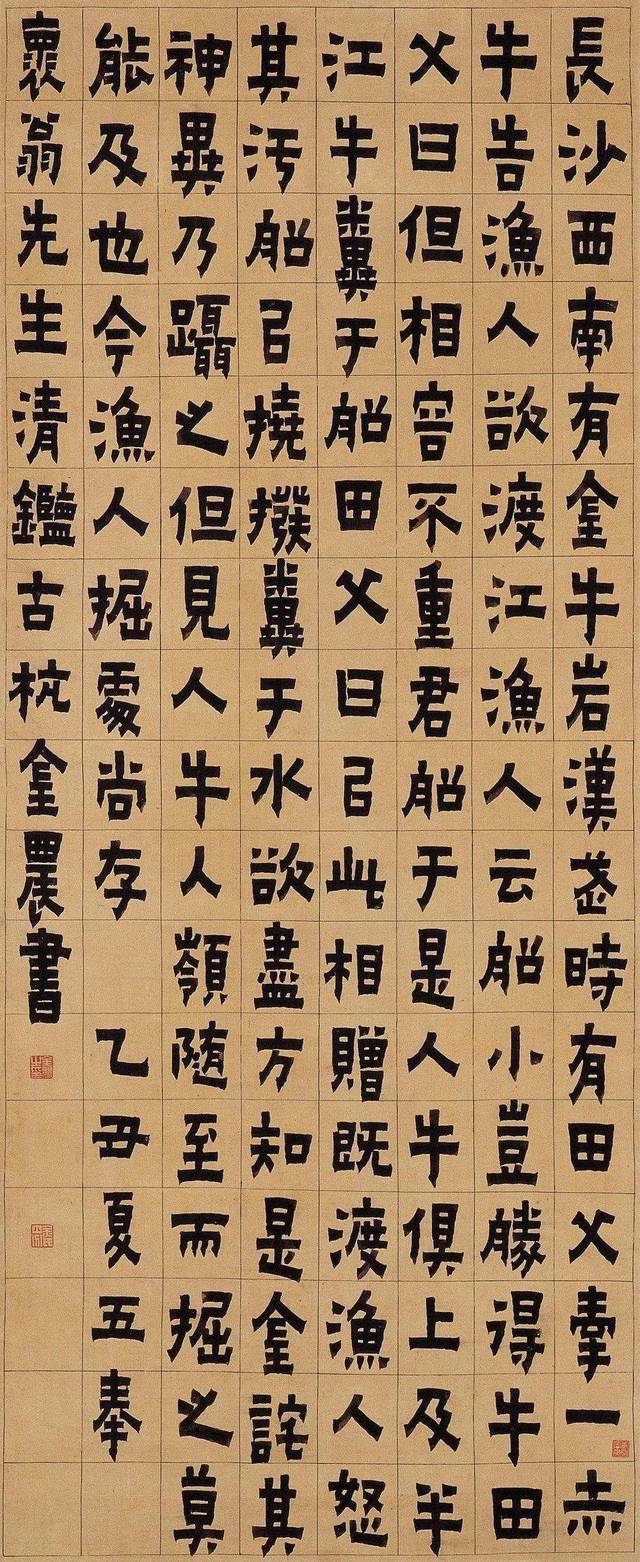 長沙西南有金牛岩漢武時有田父牽一赤
牛告漁人欲渡江漁人云船小豈勝得牛田
父曰但相容不重君船于是人牛俱上及半
江牛糞于船田父曰㠯此相贈既渡漁人怒
其污船㠯撓撥糞于水欲盡方知是金詫其
神異乃躡之但見人牛人嶺隨至而掘之莫
能及也今漁人掘處尚存 乙丑夏五奉
翁先生清鑑古杭金農書